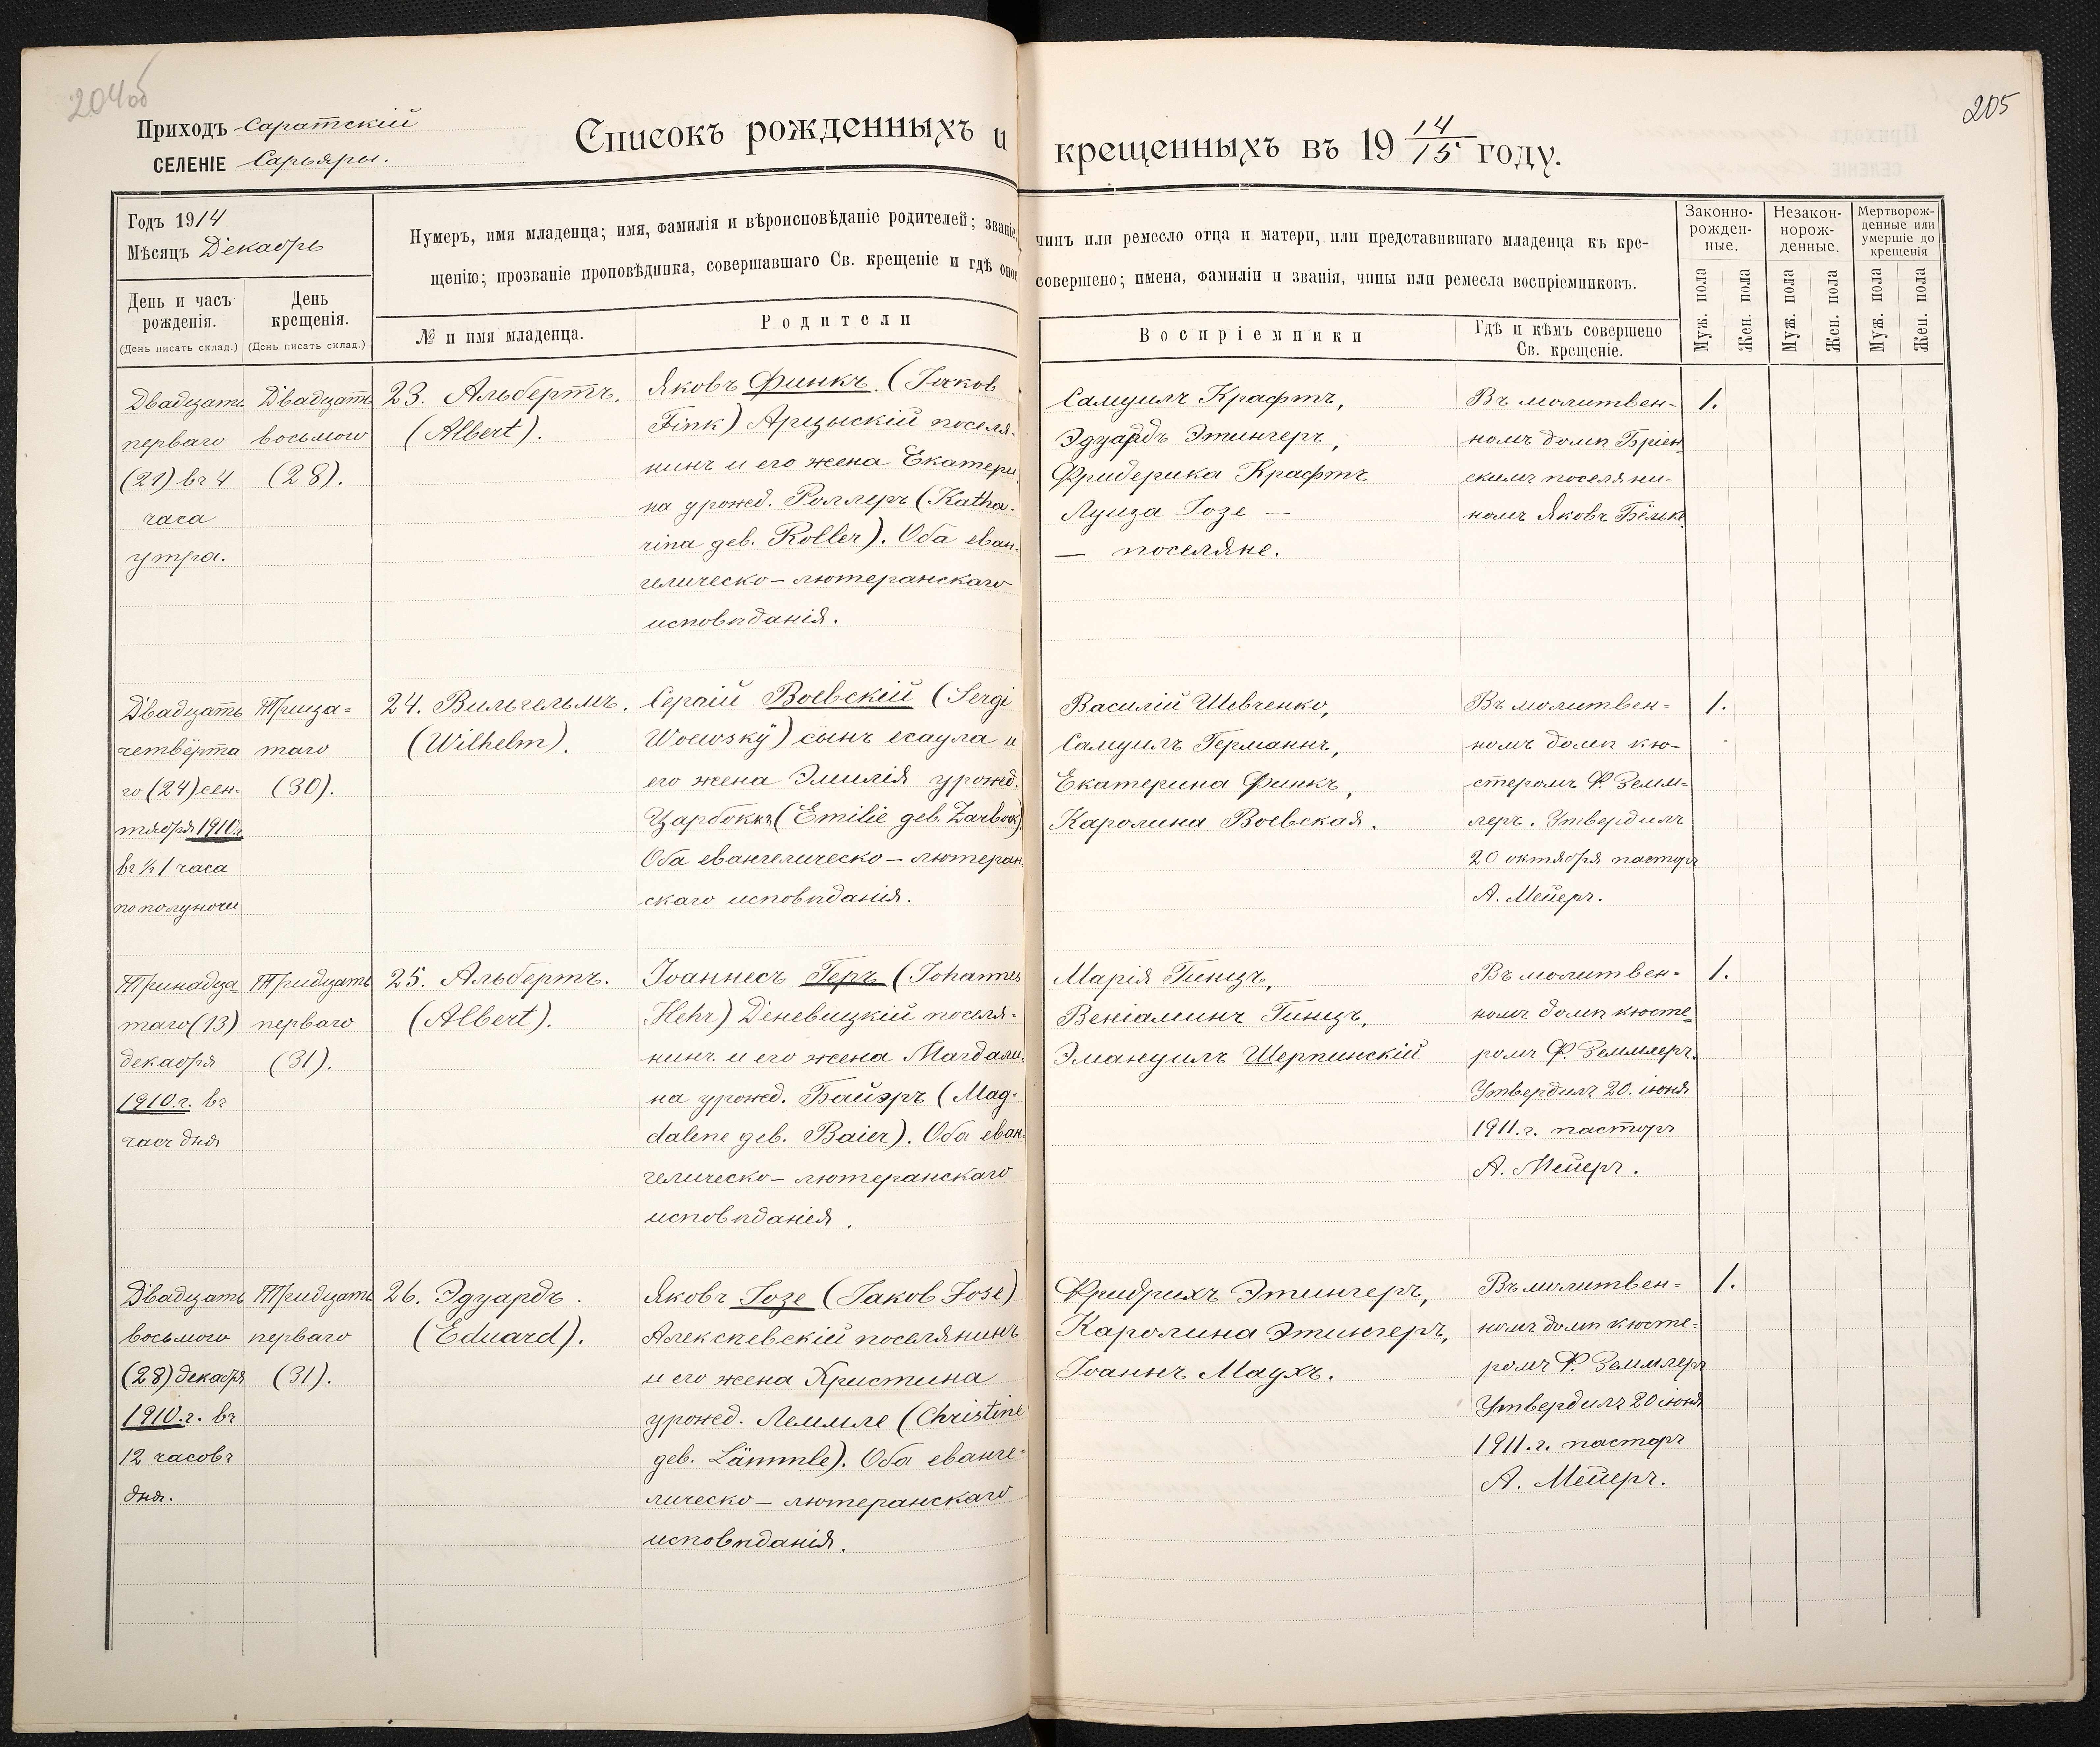 204об
205
Приходъ Саратскій
СЕЛЕНІЕ Сарьяры.
Списокъ рожденныхъ и крещенныхъ въ 19 14/15 году.
Годъ 1914
Мѣсяцъ Декабрь
День и часъ рожденія.
(День писать склад.)
День крещенія.
(День писать склад.)
Нумеръ, имя младенца; имя, фамилія и вѣроисповѣданіе родителей; званіе,
чинъ или ремесло отца и матери, или представившаго младенца къ кре-
щенію; прозваніе проповѣдника, совершавшаго Св. крещеніе и гдѣ оное
совершено; имена, фамиліи и званія, чины или ремесла воспріемниковъ.
№ и имя младенца.
Родители
Воспріемники
Гдѣ и кѣмъ совершено
Св. крещеніе.
Законно-
рожден-
ные.
Незакон-
норож-
денные.
Мертворож-
денные или
умершіе до
крещенія
Муж. пола
Жен. пола
Муж. пола
Жен. пола
Муж. пола
Жен. пола
Двадцать
перваго
(21) въ 4
часа
утра.
Двадцать
восьмого
(28).
23. Альбертъ.
(Albert).
Яковъ Финкъ. (Jakob
Fink) Арцызскій поселя-
нинъ и его жена Екатери
на урожд. Роллеръ (Katha-
rina geb. Roller). Оба еван-
гелическо-лютеранскаго
исповѣданія.
Самуилъ Крафтъ,
Эдуардъ Этингеръ,
Фридерика Крафтъ
Луиза Іозе —
— поселяне.
Въ молитвен-
номъ домѣ Бріен
скимъ поселяни-
номъ Яковъ Бёльке
1.
Двадцать
четвёрта
го (24) сен-
тября 1910г.
въ ½ 1 часа
по полуночи
Трица-
таго
(30).
24. Вильгельмъ.
(Wilhelm).
Сергій Воевскій (Sergi
Woewskÿ) сынъ есаула и
его жена Эмилія урожд.
Царбоккъ (Emilie geb. Zarbock).
Оба евангелическо-лютеран-
скаго исповѣданія.
Василій Шевченко,
Самуилъ Германнъ,
Екатерина Финкъ,
Каролина Воевская.
Въ молитвен-
номъ домѣ кю-
стеромъ Ф. Земм-
леръ. Утвердилъ
20 октября пасторъ
А. Мейеръ.
1.
Тринадца-
таго (13)
декабря
1910.г. въ
часъ дня
Тридцать
перваго
(31).
25. Альбертъ.
(Albert).
Іоаннесъ Геръ (Johannes
Hehr) Деневицкій поселя-
нинъ и его жена Магдали-
на урожд. Байэръ (Mag-
dalene geb. Baier). Оба еван-
гелическо-лютеранскаго
исповѣданія.
Марія Гинцъ,
Веніаминъ Гинцъ,
Эмануилъ Шерпинскій
Въ молитвен-
номъ домѣ кюсте-
ромъ Ф. Земмлеръ.
Утвердилъ 20. іюня
1911.г. пасторъ
А. Мейеръ.
1.
Двадцать
восьмого
(28) декабря
1910.г. въ
12 часовъ
дня.
Тридцать
перваго
(31).
26. Эдуардъ.
(Eduard).
Яковъ Іозе (Jakob Jose)
Алексѣевскій поселянинъ
и его жена Христина
урожд. Леммле (Christine
geb. Lämmle). Оба еванге-
лическо-лютеранскаго
исповѣданія.
Фридрихъ Этингеръ,
Каролина Этингеръ,
Іоаннъ Маухъ.
Въ молитвен-
номъ домѣ кюсте-
ромъ Ф. Земмлеръ
Утвердилъ 20 іюня
1911.г. пасторъ
А. Мейеръ.
1.